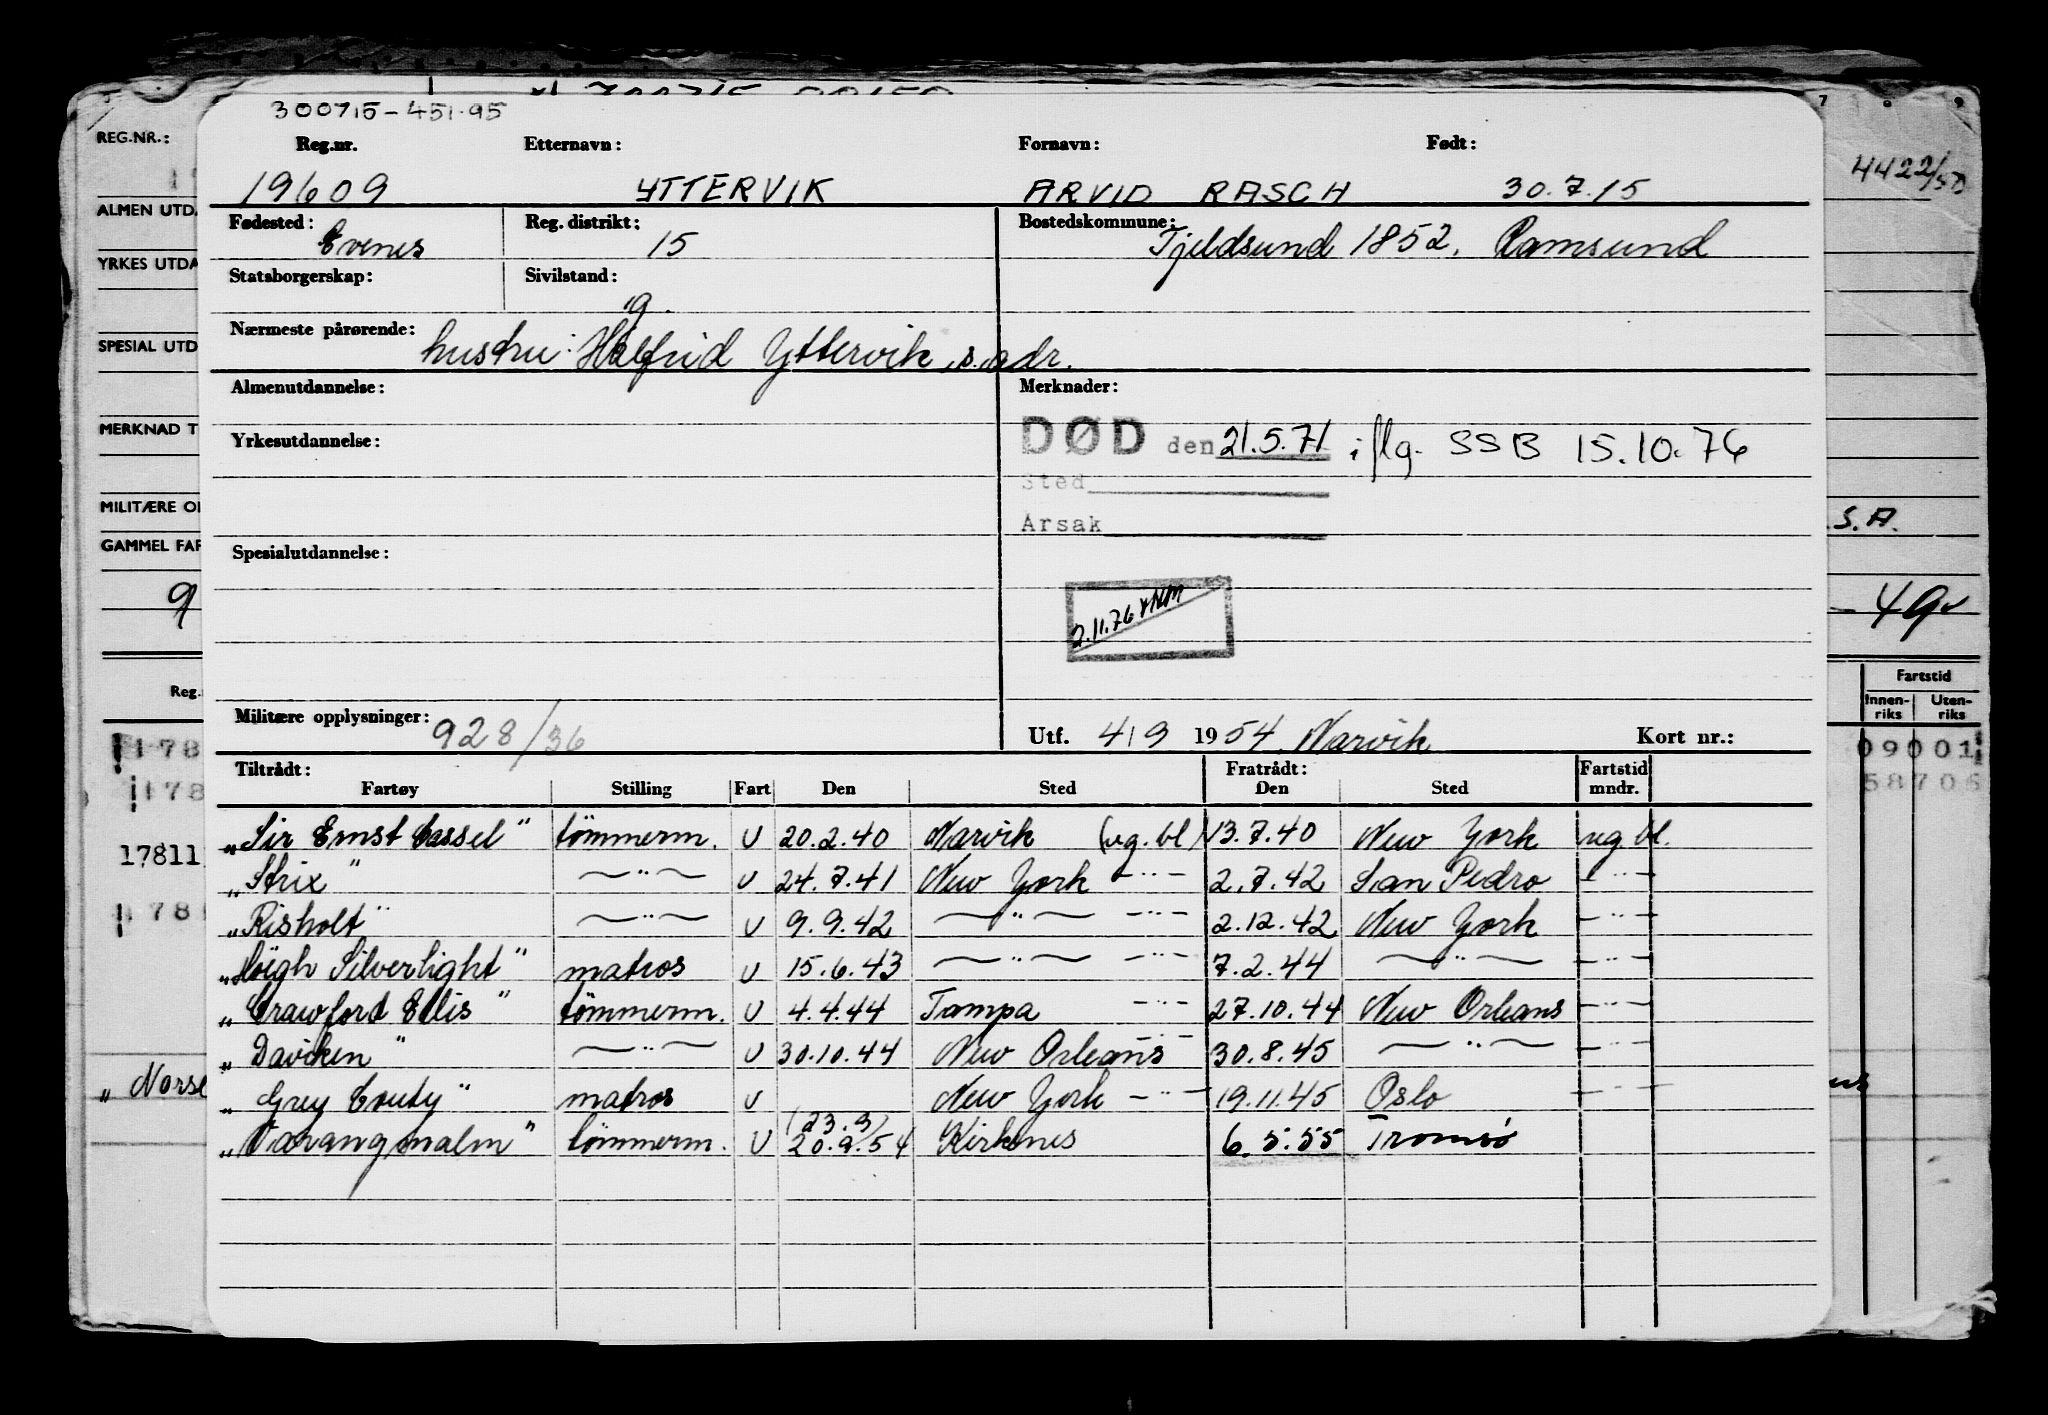 300715-451.95
Reg.nr. Etternavn: Fornavn: Født:
19609 YTTERVIK ARVID RASCH 30.7.15
Fødested: Reg. distrikt: Bostedskommune:
Evenes 15 Tjeldsund 1852. Ramsund
Statsborgerskap: Sivilstand:
g.
Nærmeste pårørende: hustru: Halfrid Yttervik, s. adr.
Almenutdannelse: Merknader:
DØD den 21.5.71 iflg. SSB 15.10.76
Yrkesutdannelse:
Sted
Arsak
Spesialutdannelse:
2.11.76
Militære opplysninger: 928/36 Utf. 4/9 1954 Narvik Kort nr.:
Tiltrådt: Fratrådt: Fartstid
Fartøy Stilling Fart Den Sted Den Sted mndr.
„Sir Ernst Cassel" tömmerm. U 20.2.40 Narvik (ug. bl) 13.7.40 New York ug. bl.
„Strix" —"— U 24.7.41 New York —"— 2.7.42 San Pedro —"—
„Risholt" —"— U 9.9.42 —"— —"— 2.12.42 New York —"—
„Höegh Silverlight" matros U 15.6.43 —"— —"— 7.2.44 —"— —"—
„Crawford Ellis" tömmerm. U 4.4.44 Tampa —"— 27.10.44 New Orleans —"—
„Daviken" —"— U 30.10.44 New Orleans —"— 30.8.45 —"— —"—
„Grey County" matros U New York —"— 19.11.45 Oslo —"—
(23.9)
„Varangmalm" tömmerm. U 20.9.54 Kirkenes 6.5.55 Tromsö
REG.NR.:
ALMEN UTDA
YRKES UTDA
SPESIAL UTD
MERKNAD T
MILITÆRE O
GAMMEL FAR
9
Reg.
178
178
17811
178
„Norse
7 8 9
4422/50
.S.A.
-49
Fartstid
Innen-riks Uten-riks
09001
58706